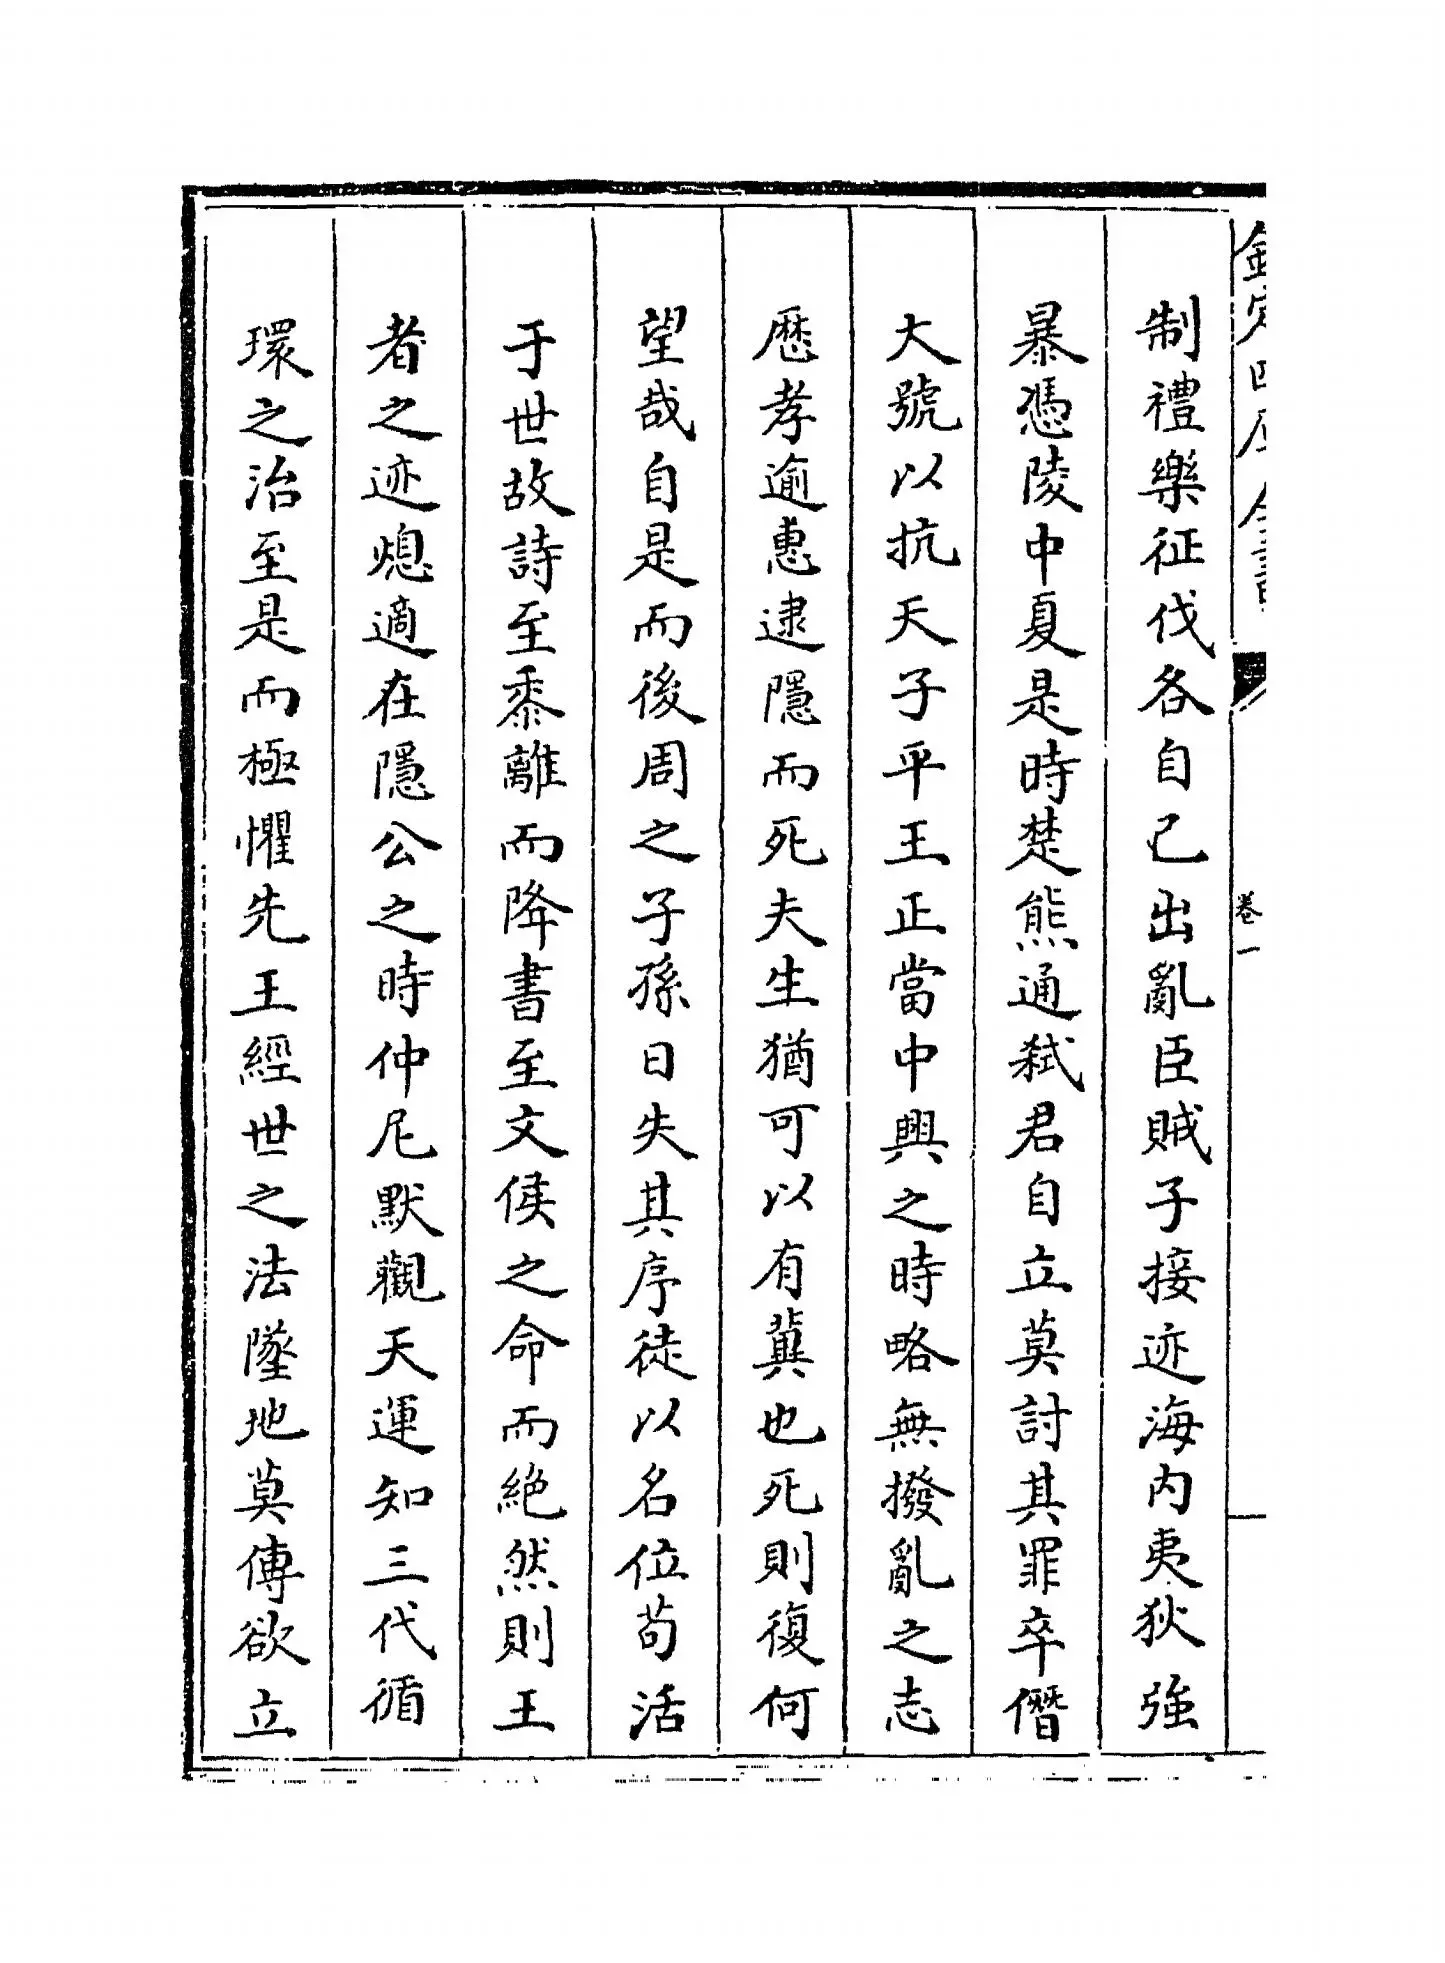 欽定四庫全書
卷一
制禮樂征伐各自己出亂臣賊子接迹海内夷狄強
暴憑陵中夏是時楚熊通弑君自立莫討其罪卒僭
大號以抗天子平王正當中興之時略無撥亂之志
歴孝逾惠逮隱而死夫生猶可以有冀也死則復何
望哉自是而後周之子孫日失其序徒以名位苟活
于世故詩至黍離而降書至文侯之命而絶然則王
者之迹熄適在隱公之時仲尼默觀天運知三代循
環之治至是而極懼先王經世之法墜地莫傳欲立